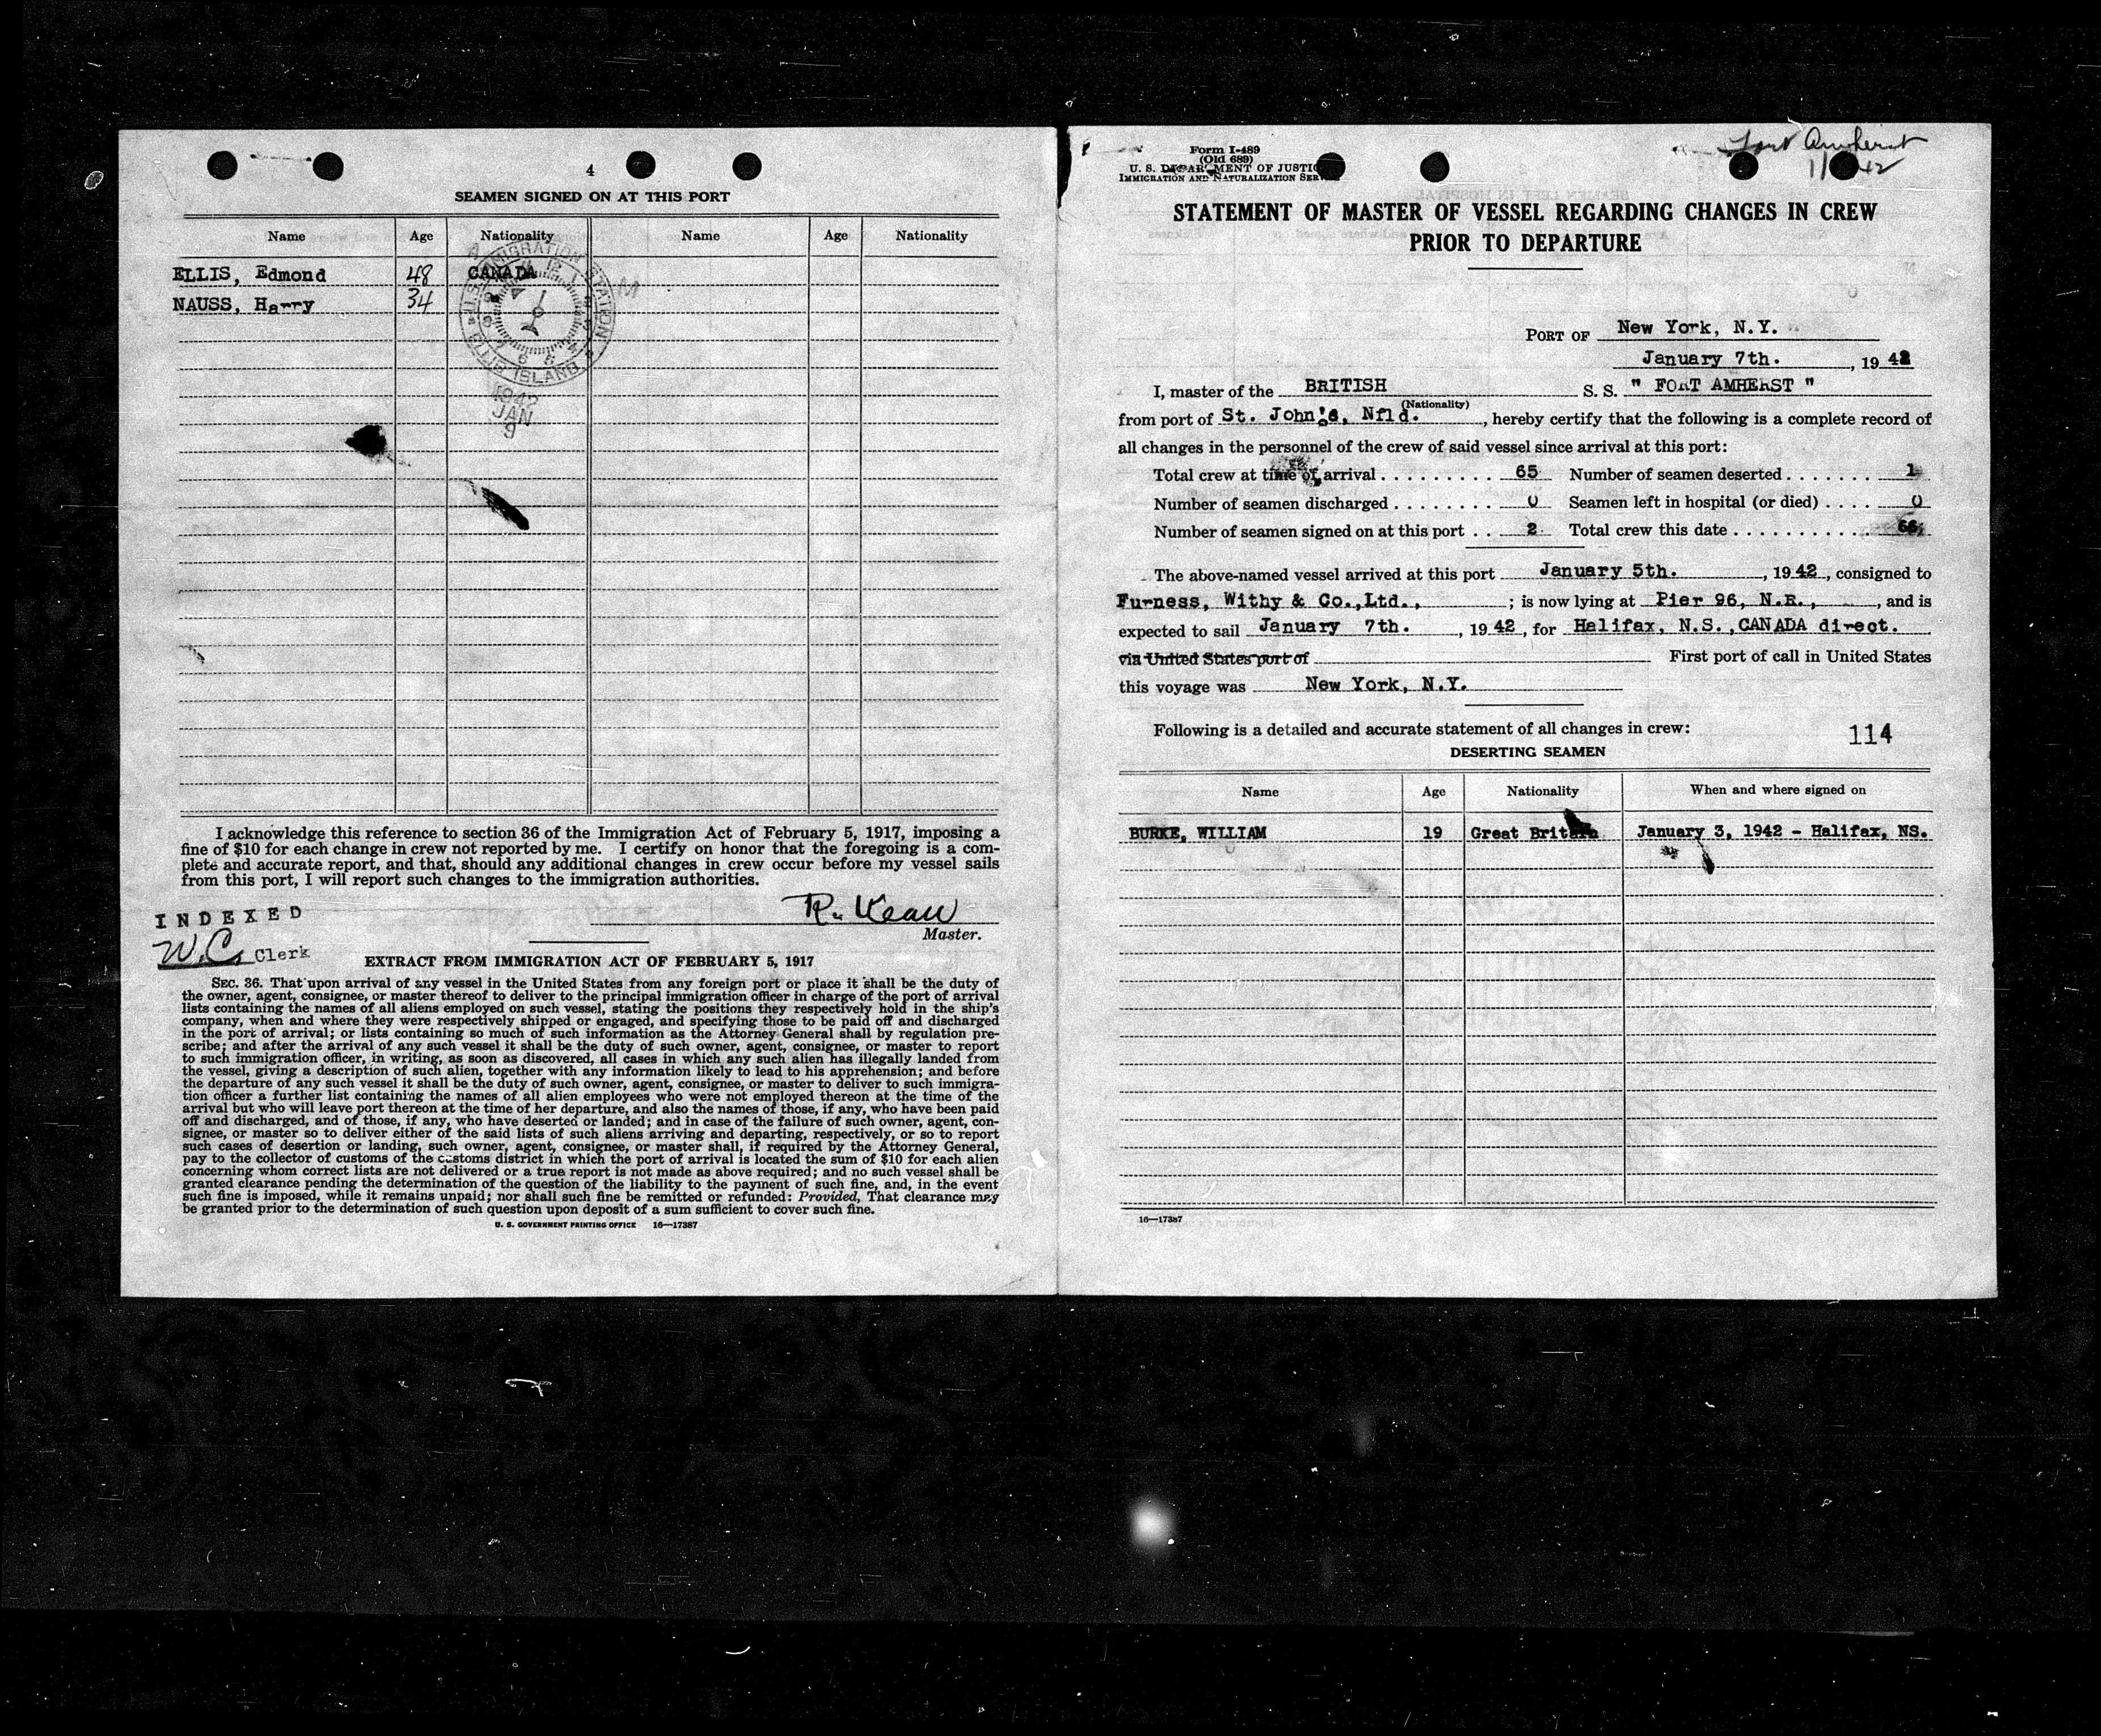 4
SEAMEN SIGNED ON AT THIS PORT
Name Age Nationality Name Age Nationality
ELLIS, Edmond 48 CANADA
NAUSS, Harry 34
U.S. IMMIGRATION STATION
ELLIS ISLAND
1942
JAN
9
I acknowledge this reference to section 36 of the Immigration Act of February 5, 1917, imposing a
fine of $10 for each change in crew not reported by me. I certify on honor that the foregoing is a com-
plete and accurate report, and that, should any additional changes in crew occur before my vessel sails
from this port, I will report such changes to the immigration authorities.
INDEXED
R. Kean
Master.
W.C. Clerk
EXTRACT FROM IMMIGRATION ACT OF FEBRUARY 5, 1917
SEC. 36. That upon arrival of any vessel in the United States from any foreign port or place it shall be the duty of
the owner, agent, consignee, or master thereof to deliver to the principal immigration officer in charge of the port of arrival
lists containing the names of all aliens employed on such vessel, stating the positions they respectively hold in the ship's
company, when and where they were respectively shipped or engaged, and specifying those to be paid off and discharged
in the port of arrival; or lists containing so much of such information as the Attorney General shall by regulation pre-
scribe; and after the arrival of any such vessel it shall be the duty of such owner, agent, consignee, or master to report
to such immigration officer, in writing, as soon as discovered, all cases in which any such alien has illegally landed from
the vessel, giving a description of such alien, together with any information likely to lead to his apprehension; and before
the departure of any such vessel it shall be the duty of such owner, agent, consignee, or master to deliver to such immigra-
tion officer a further list containing the names of all alien employees who were not employed thereon at the time of the
arrival but who will leave port thereon at the time of her departure, and also the names of those, if any, who have been paid
off and discharged, and of those, if any, who have deserted or landed; and in case of the failure of such owner, agent, con-
signee, or master so to deliver either of the said lists of such aliens arriving and departing, respectively, or so to report
such cases of desertion or landing, such owner, agent, consignee, or master shall, if required by the Attorney General,
pay to the collector of customs of the customs district in which the port of arrival is located the sum of $10 for each alien
concerning whom correct lists are not delivered or a true report is not made as above required; and no such vessel shall be
granted clearance pending the determination of the question of the liability to the payment of such fine, and, in the event
such fine is imposed, while it remains unpaid; nor shall such fine be remitted or refunded: Provided, That clearance may
be granted prior to the determination of such question upon deposit of a sum sufficient to cover such fine.
U. S. GOVERNMENT PRINTING OFFICE 16—17387
Form I-489
(Old 689)
U. S. DEPARTMENT OF JUSTICE
IMMIGRATION AND NATURALIZATION SERVICE
Fort Amherst
STATEMENT OF MASTER OF VESSEL REGARDING CHANGES IN CREW
PRIOR TO DEPARTURE
PORT OF New York, N.Y.
January 7th. , 1942
I, master of the BRITISH S. S. " FORT AMHERST "
(Nationality)
from port of St. John's, Nfld. , hereby certify that the following is a complete record of
all changes in the personnel of the crew of said vessel since arrival at this port:
Total crew at time of arrival . . . . . . . . . 65 Number of seamen deserted . . . . . . . 1
Number of seamen discharged . . . . . . . . 0 Seamen left in hospital (or died) . . . . 0
Number of seamen signed on at this port . . 2 Total crew this date . . . . . . . . . . . 66
The above-named vessel arrived at this port January 5th. , 1942, consigned to
Furness, Withy & Co.,Ltd., ; is now lying at Pier 96, N.R., , and is
expected to sail January 7th. , 1942, for Halifax, N.S.,CANADA direct.
via United States port of First port of call in United States
this voyage was New York, N.Y.
Following is a detailed and accurate statement of all changes in crew: 114
DESERTING SEAMEN
Name Age Nationality When and where signed on
BURKE, WILLIAM 19 Great Britain January 3, 1942 - Halifax, NS.
16—17387